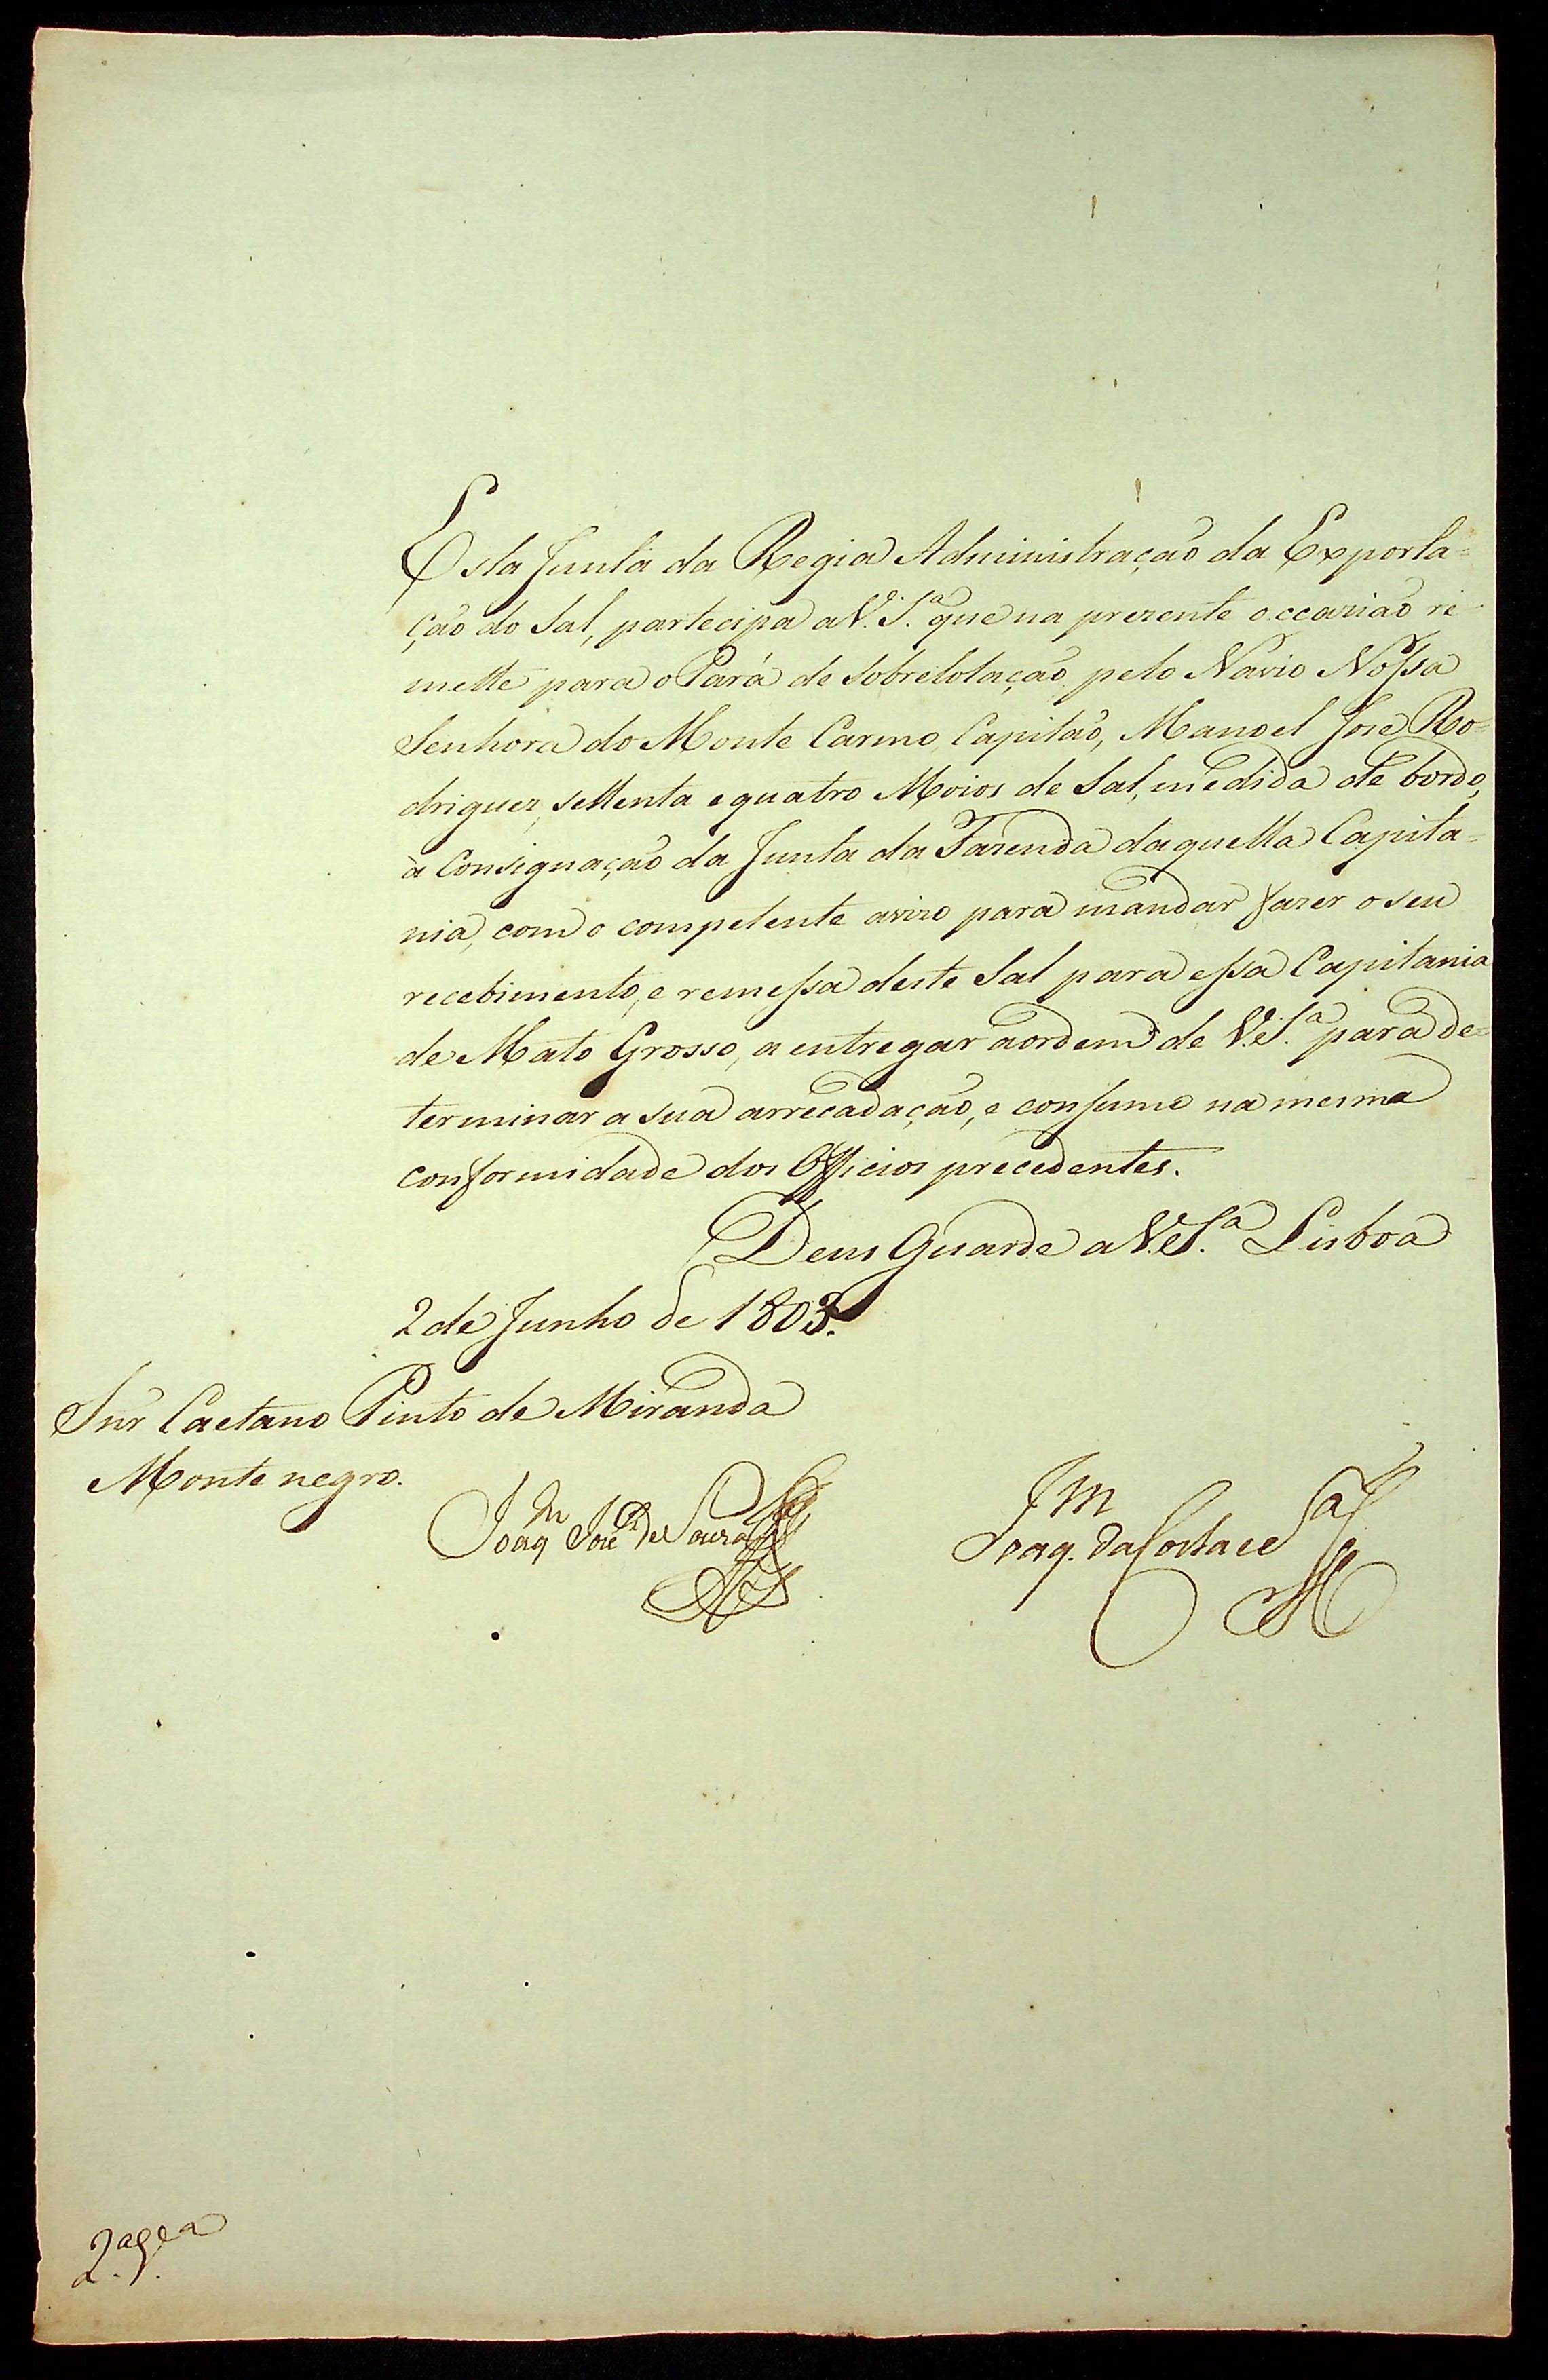 Esta Junta da Regia Administração da Exporta=
ção do Sal, partecipa a V. S.ª que na prezente occazião re
mette para o Pará de Sobrelotação pelo Navio Nossa
Senhora do Monte Carmo, Capitão, Manoel Joze Ro=
driguez, settenta e quatro Moios de Sal, medida de bordo,
à Consignação da Junta da Fazenda daquella Capita=
nia, com o competente avizo para mandar fazer o seu
recebimento, e remessa deste Sal para essa Capitania
de Mato Grosso, a entregar a ordem de V. S.ª para de=
terminar a sua arrecadação, e consumo na mesma
conformidade dos Officios precedentes.
Deus Guarde a V. S.ª Lisboa
2 de Junho de 1803.
Snr Caetano Pinto de Miranda
Monte negro.
Joaq.m José de Souza
Joaq.m da Costa e S.ª
2.ª